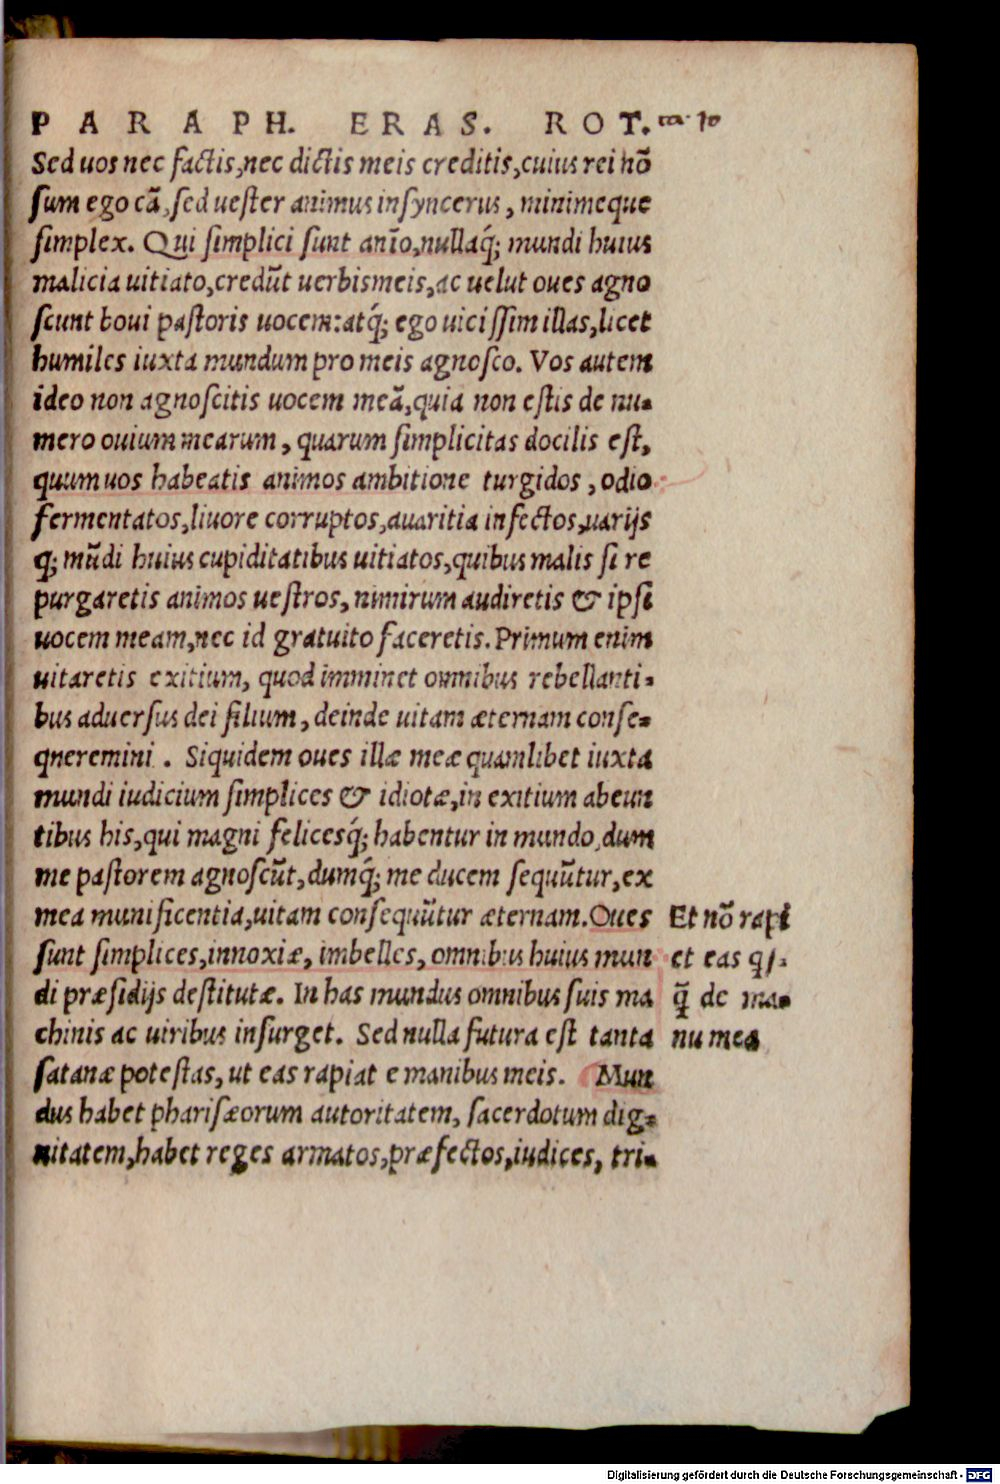 PARAPH. ERAS. ROT.
Sed uos nec factis, nec dictis meis creditis, cuius rei nõ
sum ego cã, sed uester animus insyncerus, minimeque
simplex. Qui simplici sunt anĩo, nullaq́; mundi huius
malicia uitiato, credũt uerbis meis, ac uelut oues agno
scunt boui pastoris uocem: atq́; ego uicissim illas, licet
humiles iuxta mundum pro meis agnosco. Vos autem
ideo non agnoscitis uocem meã, quia non estis de nu-
mero ouium mearum, quarum simplicitas docilis est,
quum uos habeatis animos ambitione turgidos, odio
fermentatos, liuore corruptos, auaritia infectos, uarijs
q́; mũdi huius cupiditatibus uitiatos, quibus malis si re
purgaretis animos uestros, nimirum audiretis & ipsi
uocem meam, nec id gratuito faceretis. Primum enim
uitaretis exitium, quod imminet omnibus rebellanti-
bus aduersus dei filium, deinde uitam æternam conse-
qneremini. Siquidem oues illæ meæ quamlibet iuxta
mundi iudicium simplices & idiotæ, in exitium abeun
tibus his, qui magni felicesq́; habentur in mundo, dum
me pastorem agnoscũt, dumq́; me ducem sequũtur, ex
mea munificentia, uitam consequũtur æternam. Oues
sunt simplices, innoxiæ, imbelles, omnibus huius mun
di præsidijs destitutæ. In has mundus omnibus suis ma
chinis ac uiribus insurget. Sed nulla futura est tanta
satanæ potestas, ut eas rapiat e manibus meis. Mun
dus habet pharisæorum autoritatem, sacerdotum dig-
nitatem, habet reges armatos, præfectos, iudices, tri-
Et nõ rapi
et eas qs-
q̃ de ma-
nu mea
Digitalisierung gefördert durch die Deutsche Forschungsgemeinschaft - DFG